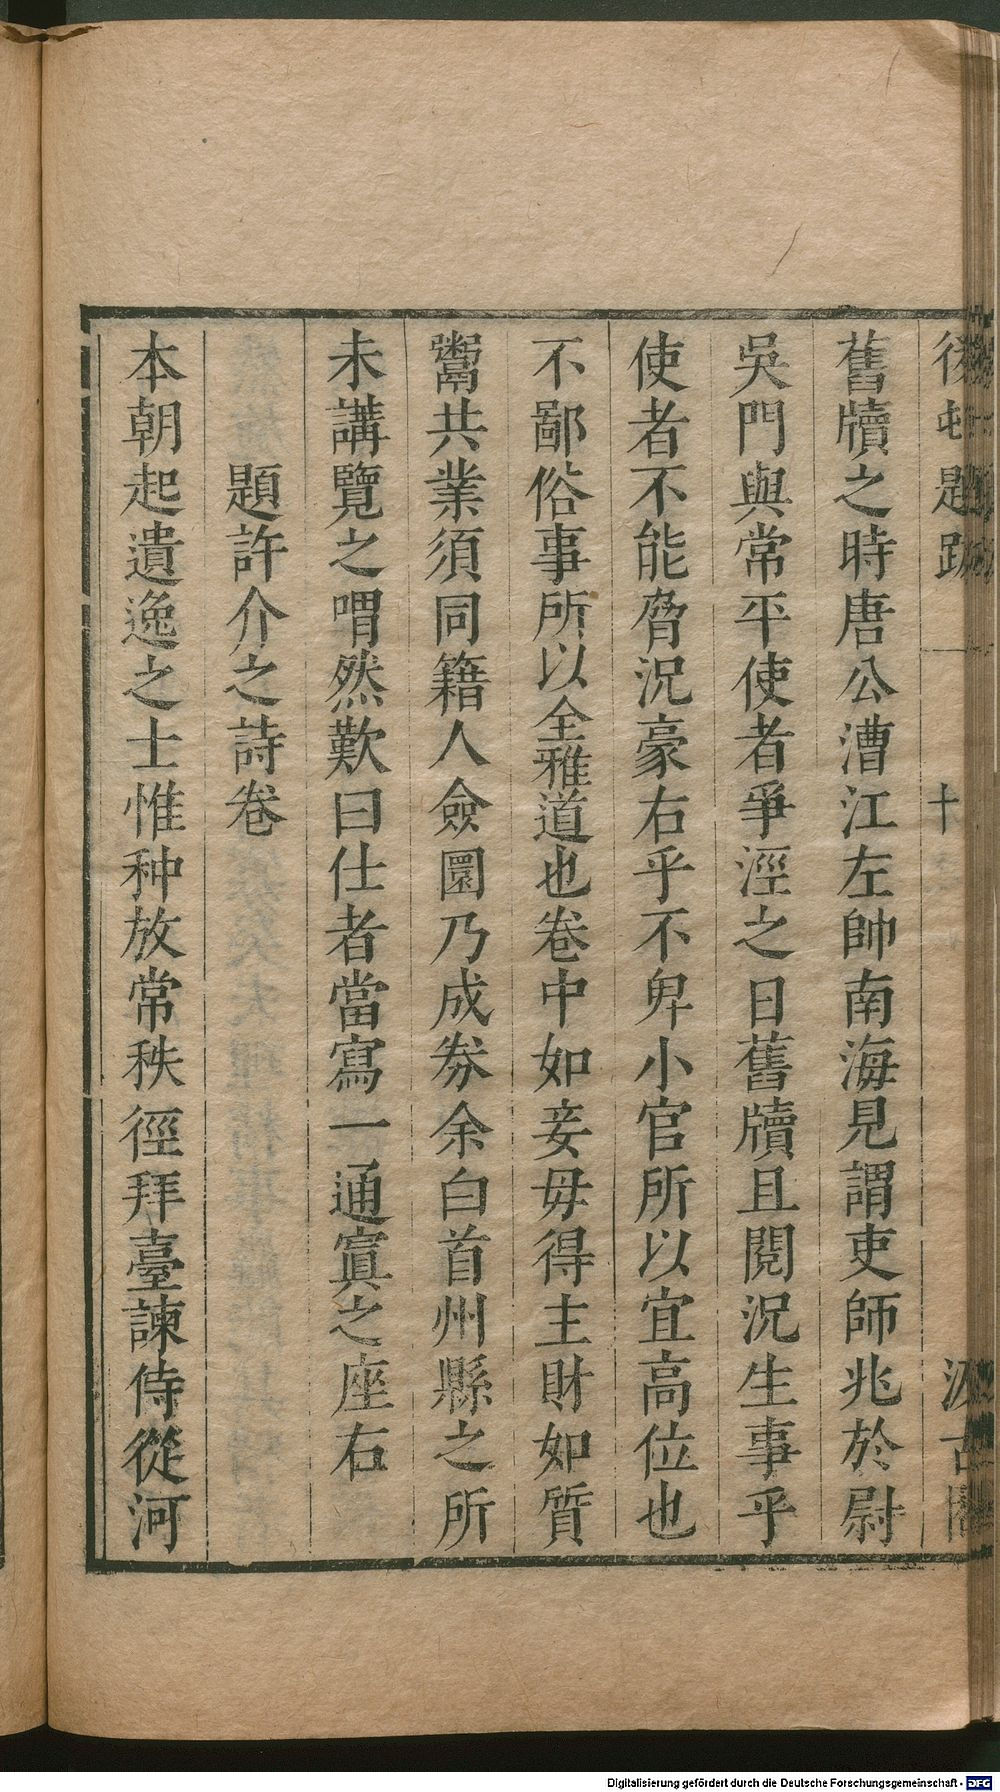 後村題跋 十 汲古閣
舊牘之時唐公漕江左帥南海見謂吏師兆於尉
吳門與常平使者爭涇之日舊牘且閱況生事乎
使者不能脅況豪右乎不卑小官所以宜高位也
不鄙俗事所以全雅道也卷中如妾毋得主財如質
鬻共業須同籍人僉圜乃成劵余白首州縣之所
未講覽之喟然歎曰仕者當寫一通寘之座右
題許介之詩卷
本朝起遺逸之士惟种放常秩徑拜臺諫侍從河
Digitalisierung gefördert durch die Deutsche Forschungsgemeinschaft - DFG